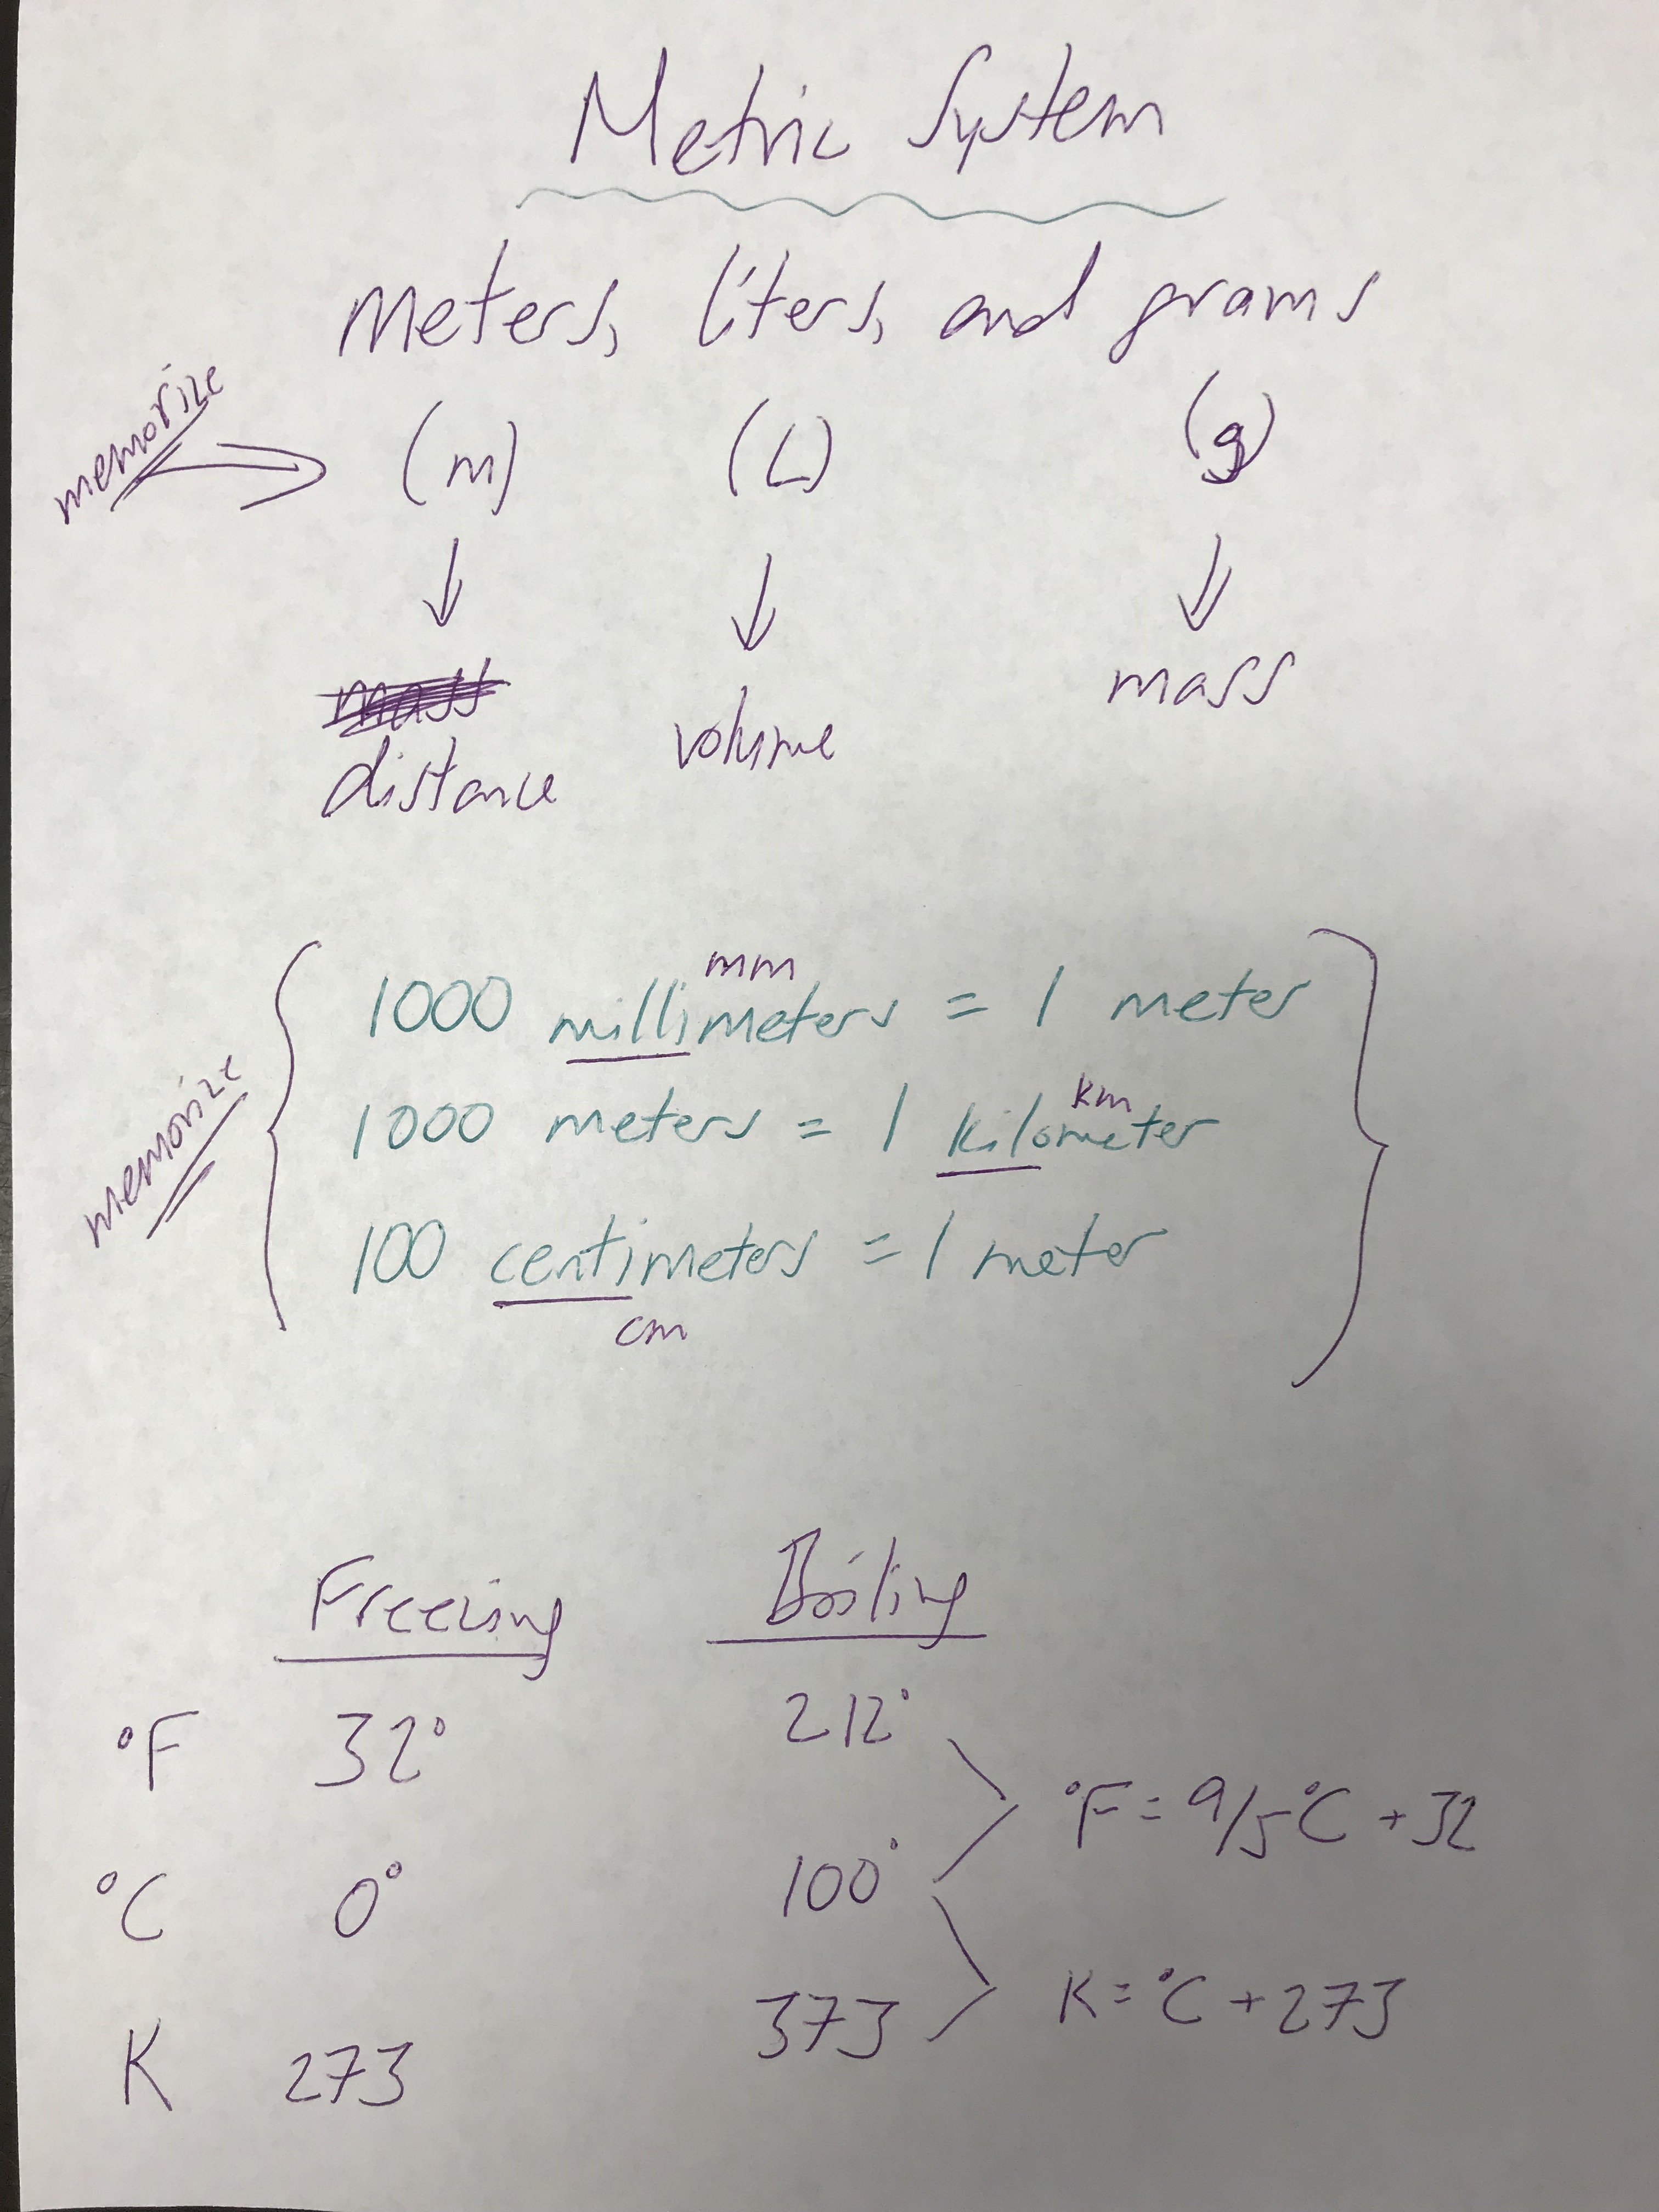 Metric System
meters, liters, and grams
memorize
(m) (L) (g)
mass
mass
distance
volume
mm
1000 millimeters = 1 meter
km
1000 meters = 1 kilometer
memorize
100 centimeters = 1 meter
cm
Freezing Boiling
°F 32° 212°
°F = 9/5 °C + 32
°C 0° 100°
K = °C + 273
K 273 373